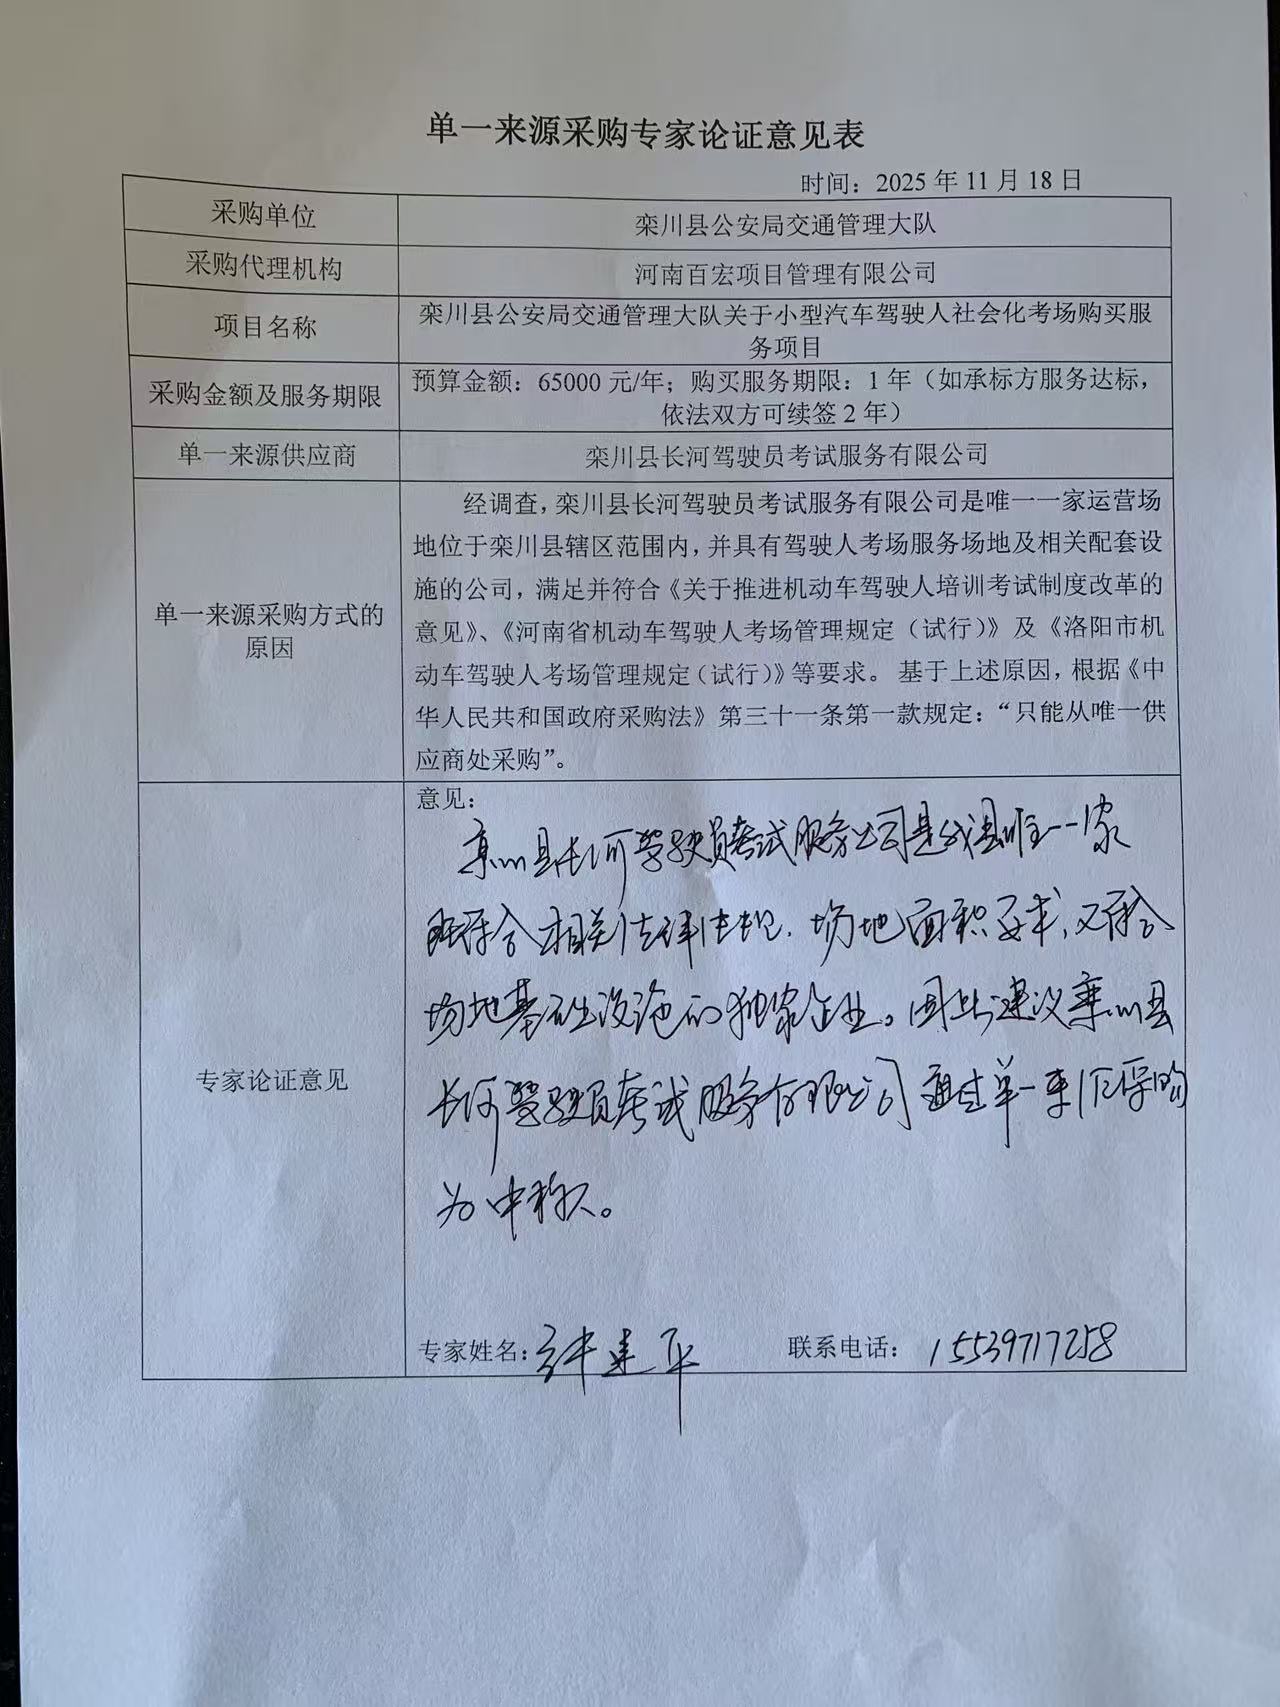 单一来源采购专家论证意见表
时间：2025年11月18日
采购单位
栾川县公安局交通管理大队
采购代理机构
河南百宏项目管理有限公司
项目名称
栾川县公安局交通管理大队关于小型汽车驾驶人社会化考场购买服
务项目
采购金额及服务期限
预算金额：65000元/年；购买服务期限：1年（如承标方服务达标，
依法双方可续签2年）
单一来源供应商
栾川县长河驾驶员考试服务有限公司
单一来源采购方式的
原因
经调查，栾川县长河驾驶员考试服务有限公司是唯一一家运营场
地位于栾川县辖区范围内，并具有驾驶人考场服务场地及相关配套设
施的公司，满足并符合《关于推进机动车驾驶人培训考试制度改革的
意见》、《河南省机动车驾驶人考场管理规定（试行）》及《洛阳市机
动车驾驶人考场管理规定（试行）》等要求。基于上述原因，根据《中
华人民共和国政府采购法》第三十一条第一款规定：“只能从唯一供
应商处采购”。
专家论证意见
意见：
栾川县长河驾驶员考试服务公司是我县唯一一家
既符合相关法律法规、场地面积要求，又符合
场地基础设施的独家企业。因此建议栾川县
长河驾驶员考试服务有限公司通过单一来源采购
为中标人。
专家姓名：
建平
联系电话：15539717258